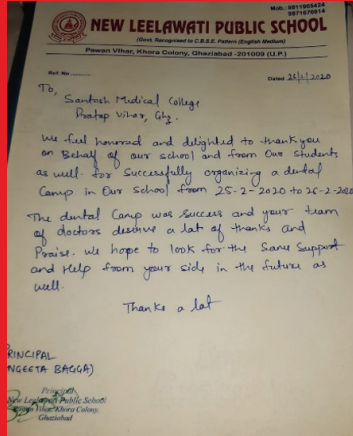 Mob.: 9811905424
9871679814
NEW LEELAWATI PUBLIC SCHOOL
(Govt. Recognised to C.B.S.E. Pattern (English Medium)
Pawan Vihar, Khora Colony, Ghaziabad -201009 (U.P.)
Ref. No.
Dated 26/2/2020
To,
Santosh Medical College
Pratap Vihar, Ghz.
We feel honored and delighted to thank you
on Behalf of our school and from Our students
as well for successfully organizing a dental
Camp in Our School from 25-2-2020 to 26-2-2020
The dental Camp was success and your team
of doctors deserve a lot of thanks and
Praise. We hope to look for the Same Support
and Help from your side in the future as
well.
Thanks a lot
RINCIPAL
NGEETA BAGGA)
Principal
New Leelawati Public School
Vihar, Khora Colony,
Ghaziabad